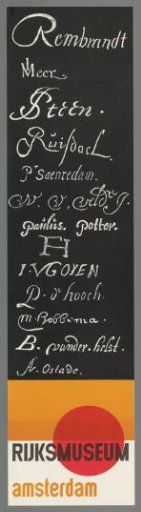 Rembrandt
Meer.
JSteen.
Ruisdael.
P. Saenredam.
paulus. Potter.
FH
I·VGOYEN
P. d'hooch.
m. Hobbema.
B. vander. helst.
A. Ostade.
RIJKSMUSEUM
amsterdam